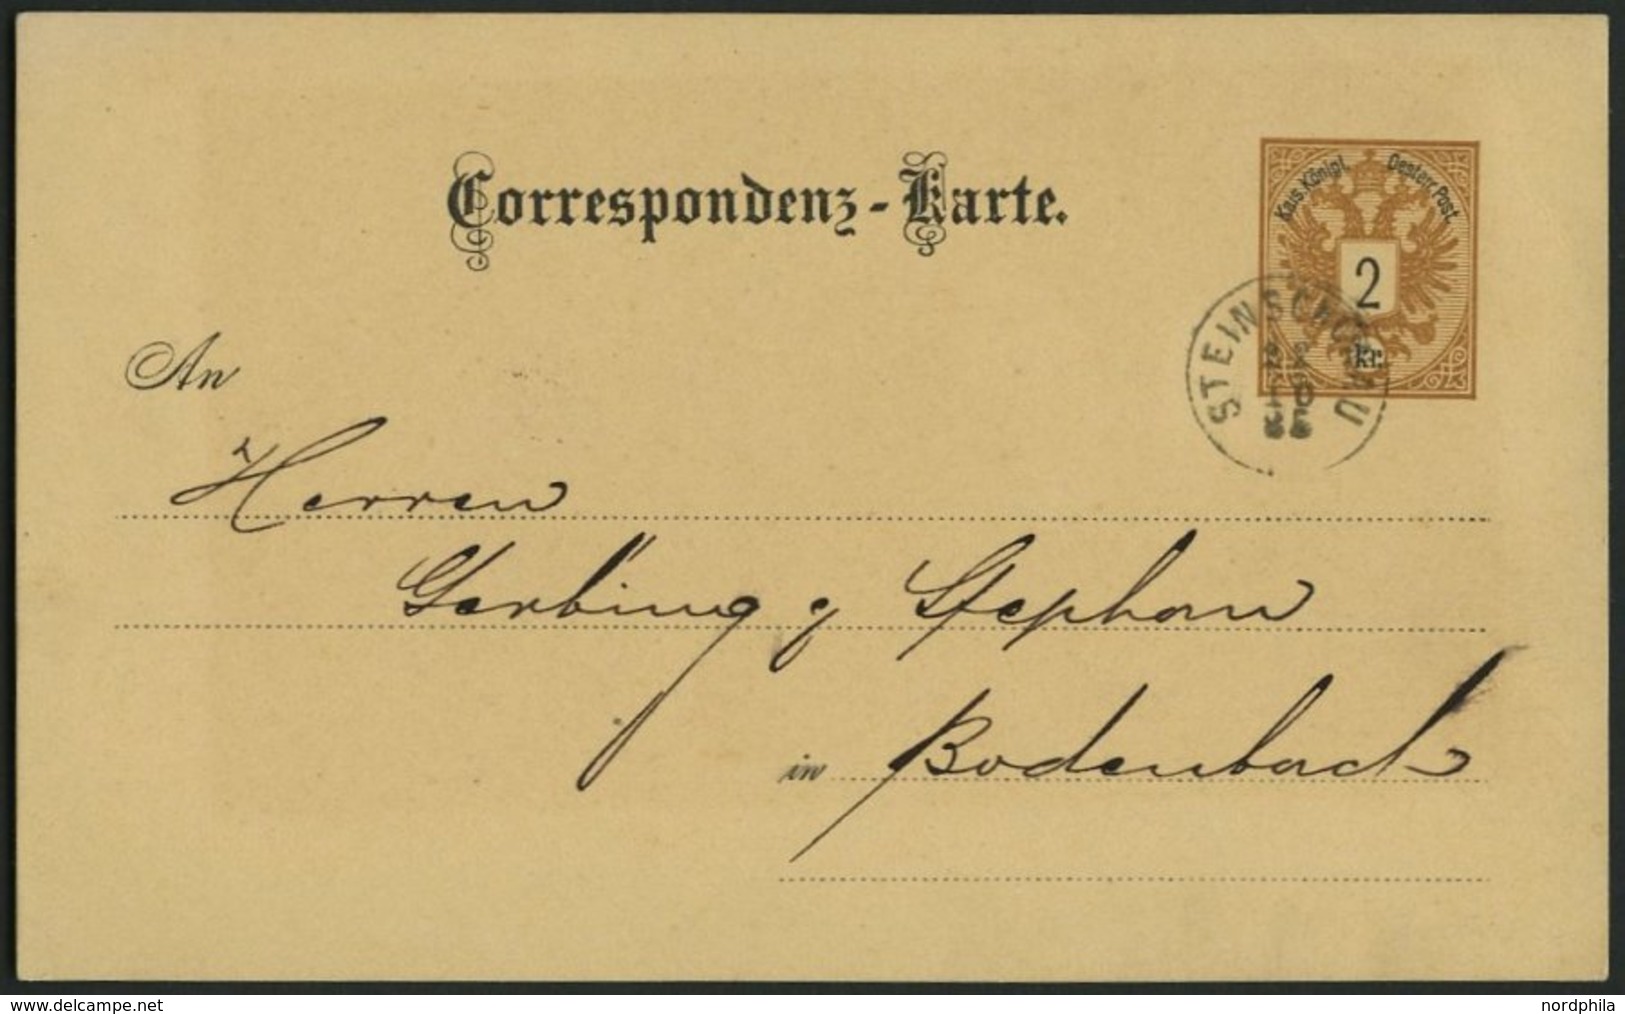 Correspondenz-Karte.
Kais. Königl. Oesterr. Post
2
kr.
STEINSCHÖNAU
An
Herren
Gerbing & Stephan
in Bodenbach
www.delcampe.net
nordphila